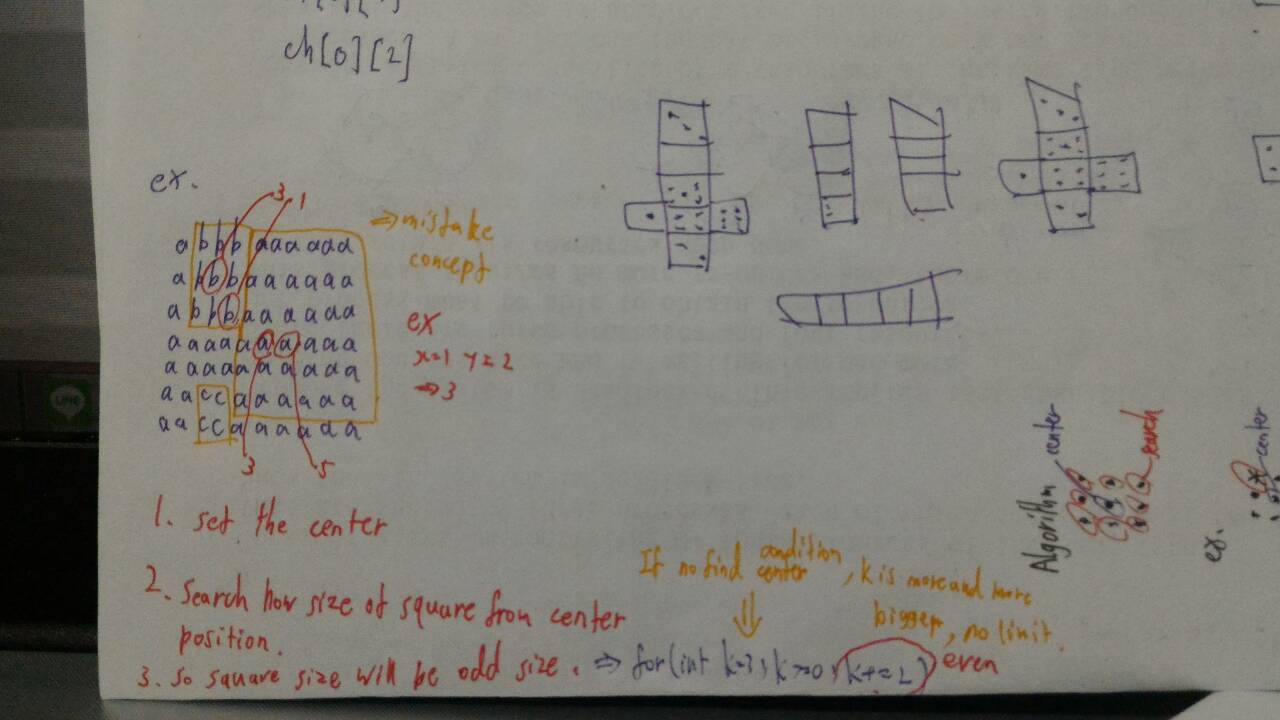 ch[0][2]
ex.
3
1
a b b b a a a a a a
a b b b a a a a a a
a b b b a a a a a a
a a a a a a a a a a
a a a a a a a a a a
a a c c a a a a a a
a a c c a a a a a a
3
5
⇒ mistake
concept
ex
x=1 y=2
⇒ 3
1. set the center
2. Search how size of square from center
position.
3. so square size will be odd size. ⇒ for(int k=3; k>0; k+=2) even
If no find condition center, k is more and more
bigger, no limit.
Algorithm
center
search
ex.
center
LINE